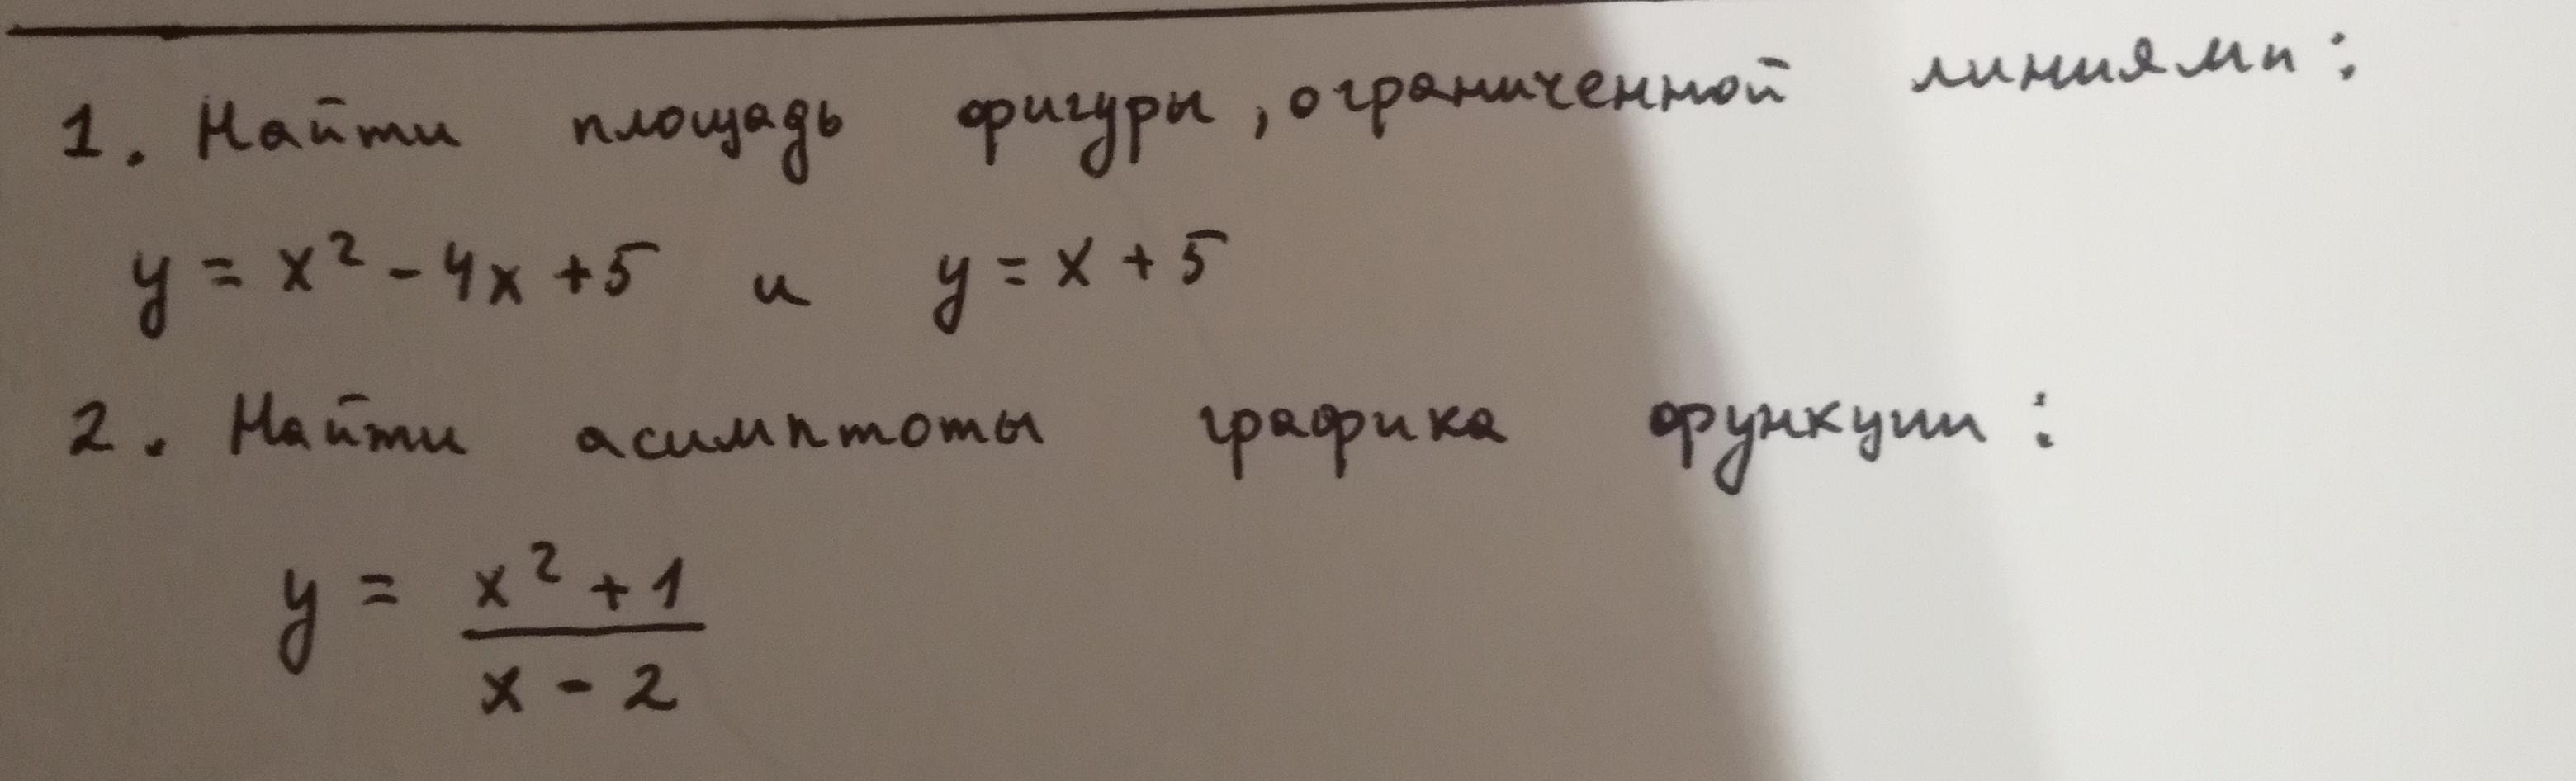 1. Найти площадь фигуры, ограниченной линиями:
y = x² - 4x + 5 и y = x + 5
2. Найти асимптоты графика функции:
y = (x² + 1) / (x - 2)